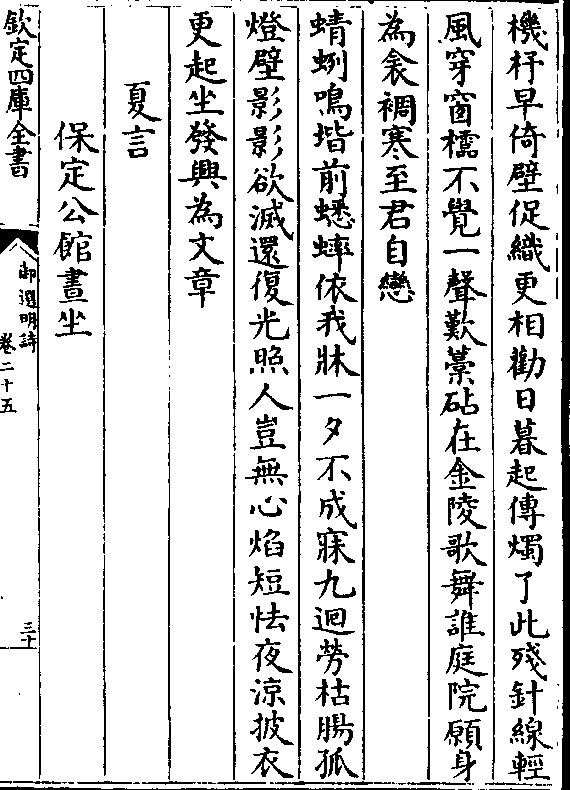 機杼早倚壁促織更相勸日暮起傳燭了此殘針線輕
風穿窗櫺不覺一聲歎藁砧在金陵歌舞誰庭院願身
為衾裯寒至君自戀
蜻蛚鳴堦前蟋蟀依我牀一夕不成寐九迴勞枯腸孤
燈壁影影欲滅還復光照人豈無心焰短怯夜涼披衣
更起坐發興為文章
夏言
保定公館晝坐
欽定四庫全書
御選明詩
卷二十五
三十